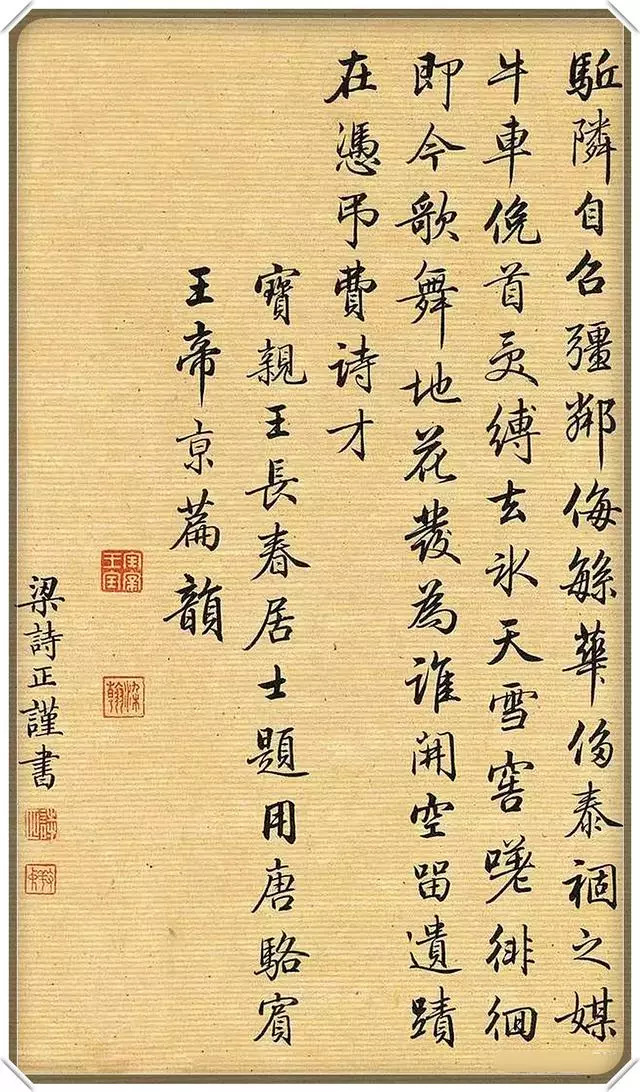 駈隣自召疆鄰侮緐華侈泰禍之媒
牛車俛首受縛去氷天雪窖嗟徘徊
即今歌舞地花發為誰開空留遺蹟
在憑弔費詩才
寶親王長春居士題用唐駱賓
王帝京篇韻
寶親王寶
梁詩正謹書